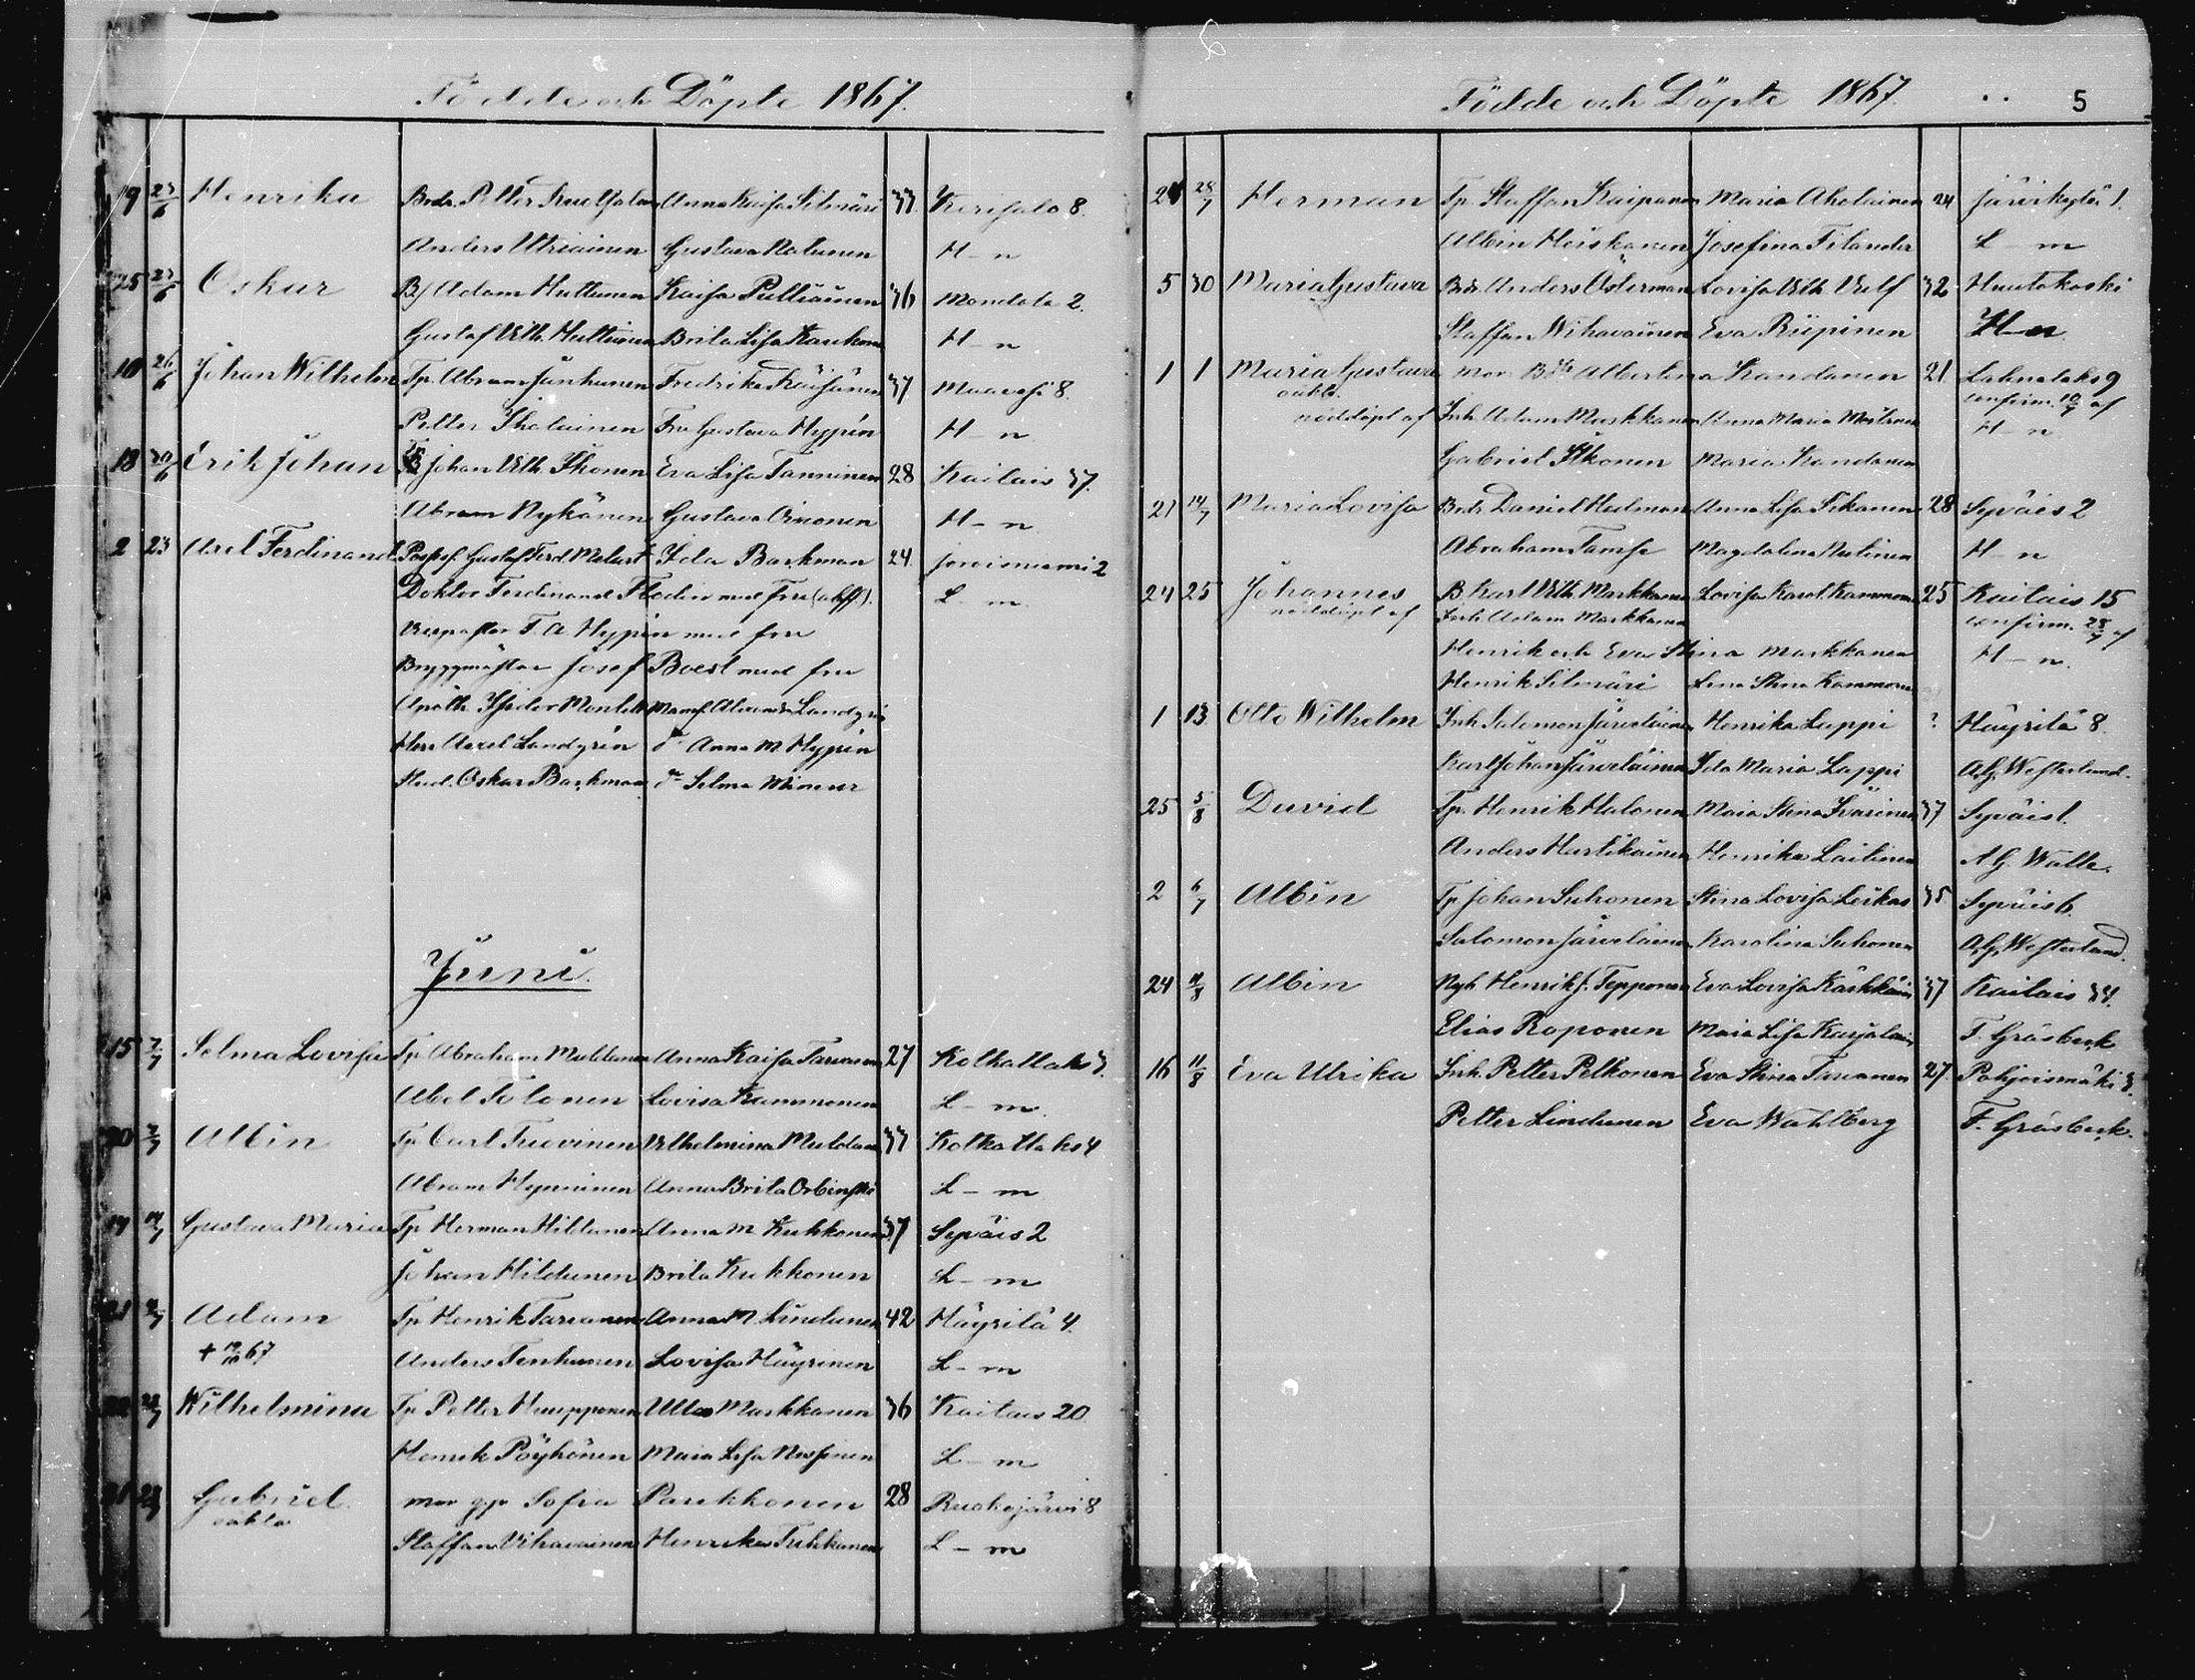 Födde och Döpte 1867.
19 23/6 Henrika Bndr. Petter Anna Kaisa Silmäri 33 Kerisalo 8.
Anders Utriainen Gustava H-n
25 23/6 Oskar Bj Adam Huttunen Kaisa Pulliainen 36 Mandola 2.
Gustaf Vilh. Huttunen Brita Lisa H-n
10 26/6 Johan Wilhelm Tp. Abram Janhunen Fredrika 37 Maavesi 8.
Petter Iholainen Fru Gustava Hypén H-n
18 30/6 Erik Johan Johan Vilh. Ihonen Eva Lisa Tanninen 28 Kaitais 37.
Abram Nykänen Gustava Oinonen H-n
2 23 Axel Ferdinand Gustaf Ferd. Melart Ida Barkman 24. Joroisniemi 2
Doktor Ferdinand Flodin med Fru L-m.
F. A. Hypén med fru
Bryggmästar Josef Boest med fru
Isidor Montell Mams. Alexandra Lundgrén
Herr Axel Lundgrén d:o Anna M. Hypén
Stud. Oskar Barkman d:o Selma
Juni.
15 7/7 Selma Lovisa Tp. Abraham Muldanen Anna Kaisa Tarvanen 27 Kolkattaks 3.
Abel Tolonen Lovisa Kammonen L-m.
20 7/7 Albin Tp Carl Tuovinen Vilhelmina 33 Kolkattaks 4
Abram Hynninen Anna Brita L-m
19 14/7 Gustava Maria Tp Herman Hildunen Anna M. Kukkonen 37 Syväis 2
Johan Hildunen Brita Kukkonen L-m
21 /7 Adam Tp Henrik Tarvanen Anna M. Lindunen 42 Häyrilä 4.
+ 67 Anders Tenhunen Lovisa Häyrinen L-m
/7 Wilhelmina Tp Petter Huupponen Ulla Markkanen 36 Kaitais 20.
Henrik Pöyhönen Maia Lisa L-m
Gabriel mor pp. Sofia Paukkonen 28 Ruokojärvi 8
oäkta Staffan Vihavainen Henrika Tuhkanen L-m
Födde och Döpte 1867. 5
24 28/7 Herman Tp. Staffan Kaipanen Maria Aholainen 24 Järvikylä 1.
Albin Heiskanen Josefina Tilander L-m
5 30 Maria Gustava Bndr. Anders Österman Lovisa Vilh. Vulf 32 Huutokoski
Staffan Wihavainen Eva Riipinen H-n.
1 1 Maria Gustava mor Albertina Kandanen 21 Lahnalaks 9
oäkta. confirm. 10/7 af
nöddöpt af Inh. Adam Maskkanen Anna Maria H-n
Gabriel Itkonen Maria Kandanen
21 14/7 Maria Lovisa Bndr. Daniel Hedman Anna Lisa Tikanen 28 Syväis 2
Abraham Tamse Magdalena H-n
24 25 Johannes B. Karl Vilh. Markkanen Lovisa Karol. Kammonen 25 Kaitais 15
nöddöpt af Inh. Adam Markkanen confirm. 28/7 af
Henrik och Eva Stina Markkanen H-n.
Henrik Silmäri Lena Stina Kammonen
1 13 Otto Wilhelm Inh. Salomon Järveläinen Henrika Lappi ? Häyrilä 8.
Karl Johan Järveläinen Ida Maria Lappi A.G. Westerlund.
25 5/8 David Tp. Henrik Halonen Maia Stina Kärinen 37 Syväis 1.
Anders Hartikainen Henrika Laitinen A.G. Walle.
2 6/7 Albin Tp Johan Suhonen Stina Lovisa 35 Syväis 6.
Salomon Järveläinen Karolina Suhonen A.G. Westerlund.
24 /8 Albin Nyb. Henrik J. Tepponen Eva Lovisa Kärkkäinen 37 Kaitais 34.
Elias Roponen Maia Lisa Karjalainen F. Gräsbeck
16 11/8 Eva Ulrika Inh. Petter Pelkonen Eva Stina Tarvanen 27. Pohjoismäki 3.
Petter Lindunen Eva Wahlberg F. Gräsbeck.